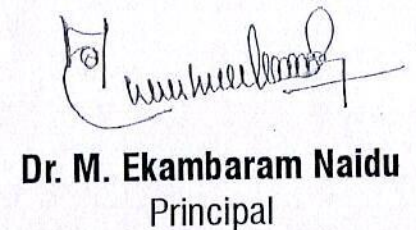 Dr. M. Ekambaram Naidu
Principal